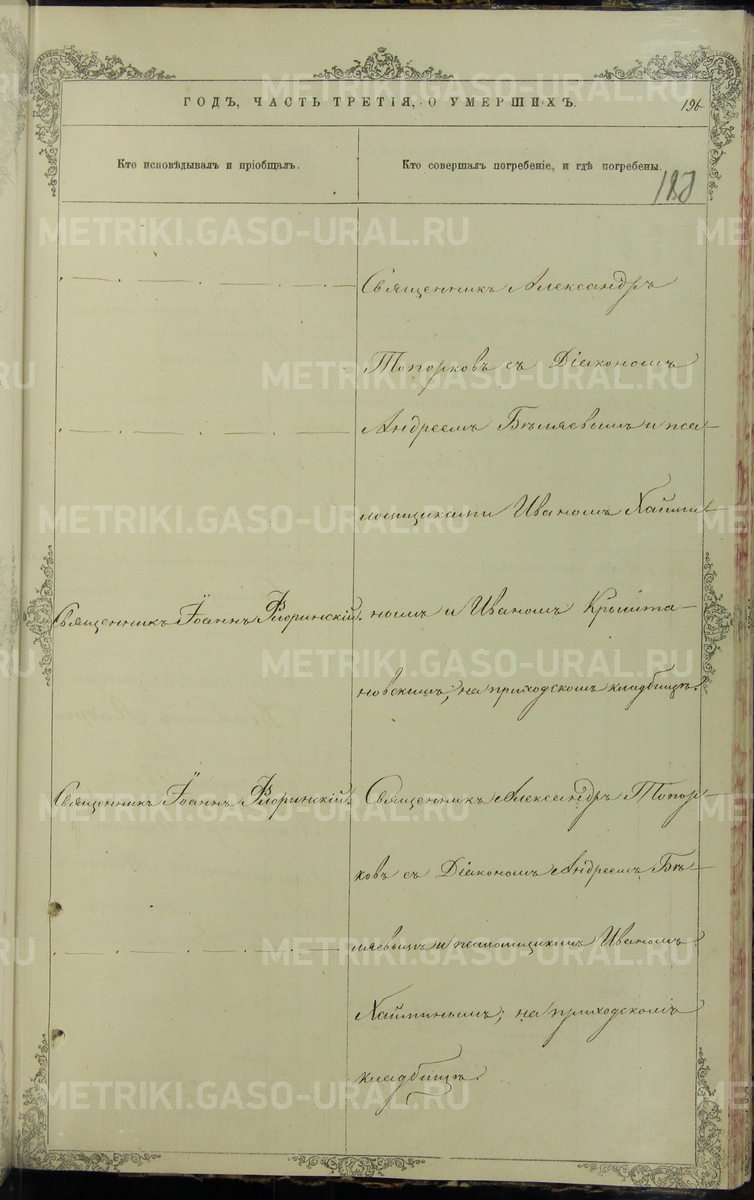 ГОДЪ, ЧАСТЬ ТРЕТІЯ, О УМЕРШИХЪ.
196
Кто исповѣдывалъ и пріобщалъ.
Кто совершалъ погребеніе, и гдѣ погребены.
Священникъ Александръ
Топорковъ съ Діакономъ
Андреемъ Бѣляевымъ и пса-
ломщиками Иваномъ Хайми-
Священникъ Іоаннъ Флоринскій.
нымъ и Иваномъ Крыжта-
новскимъ; на приходскомъ кладбищѣ.
Священникъ Іоаннъ Флоринскій.
Священникъ Александръ Топор-
ковъ съ Діакономъ Андреемъ Бѣ-
ляевымъ и псаломщикомъ Иваномъ
Хайминымъ; на приходскомъ
кладбищѣ.
METRIKI.GASO-URAL.RU